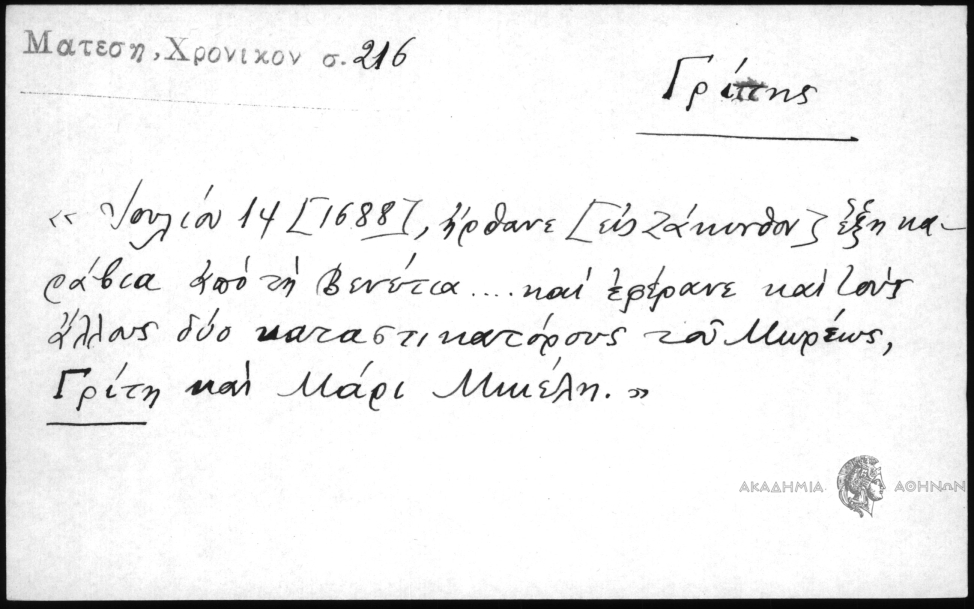 Ματεση, Χρονικον σ. 216
Γρίτης
« Ἰουλίου 14 [1688], ἤρθανε [εἰς Ζάκυνθον] ἕξη κα-
ράβια ἀπό τή Βενέτια .... καί ἐφέρανε καί τούς
ἄλλους δύο καταστικατόρους τοῦ Μωρέως,
Γρίτη καί Μάρι Μικέλη. »
ΑΚΑΔΗΜΙΑ ΑΘΗΝΩΝ